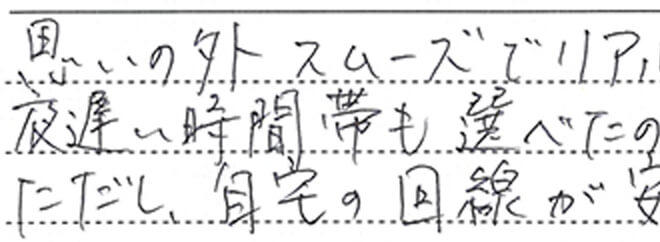 思いの外スムーズでリアル
夜遅い時間帯も選べたの
ただし、自宅の回線が安